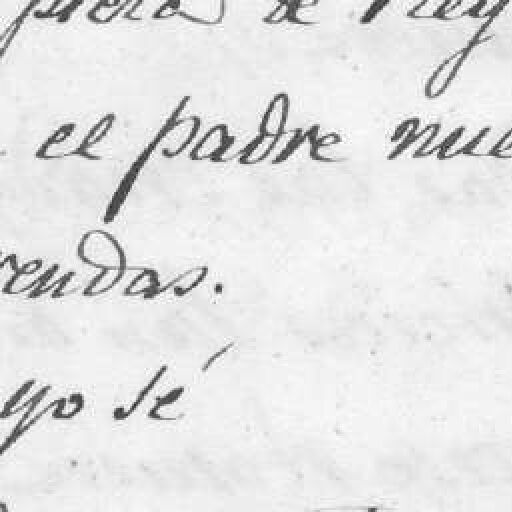 de Rey
el padre nue
rendas.
yo sé